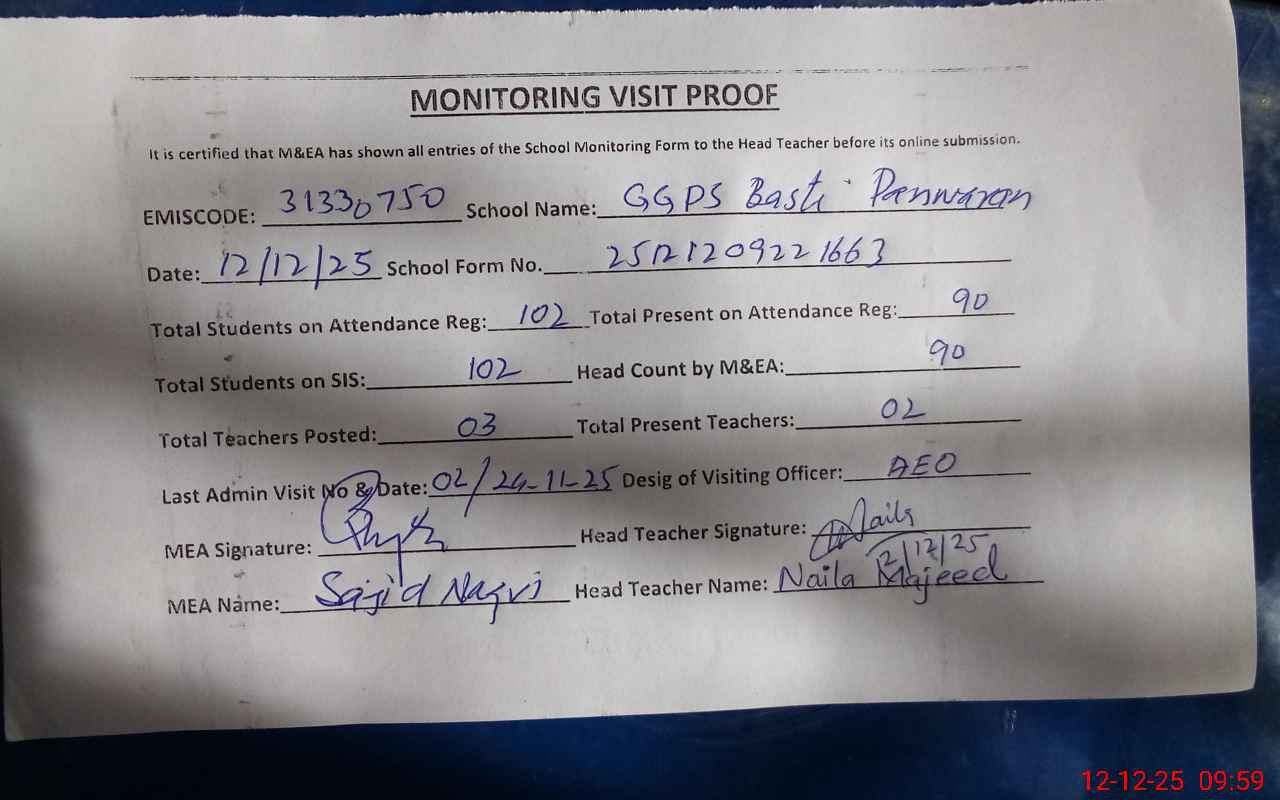 MONITORING VISIT PROOF
It is certified that M&EA has shown all entries of the School Monitoring Form to the Head Teacher before its online submission.
EMISCODE: 31330750 School Name: GGPS Basti Panwaran
Date: 12/12/25 School Form No. 2512120922 1663
Total Students on Attendance Reg: 102 Total Present on Attendance Reg: 90
Total Students on SIS: 102 Head Count by M&EA: 90
Total Teachers Posted: 03 Total Present Teachers: 02
Last Admin Visit No & Date: 02/24-11-25 Desig of Visiting Officer: AEO
MEA Signature: Head Teacher Signature: Naila
12/12/25
MEA Name: Sajid Naqvi Head Teacher Name: Naila Majeed
12-12-25 09:59